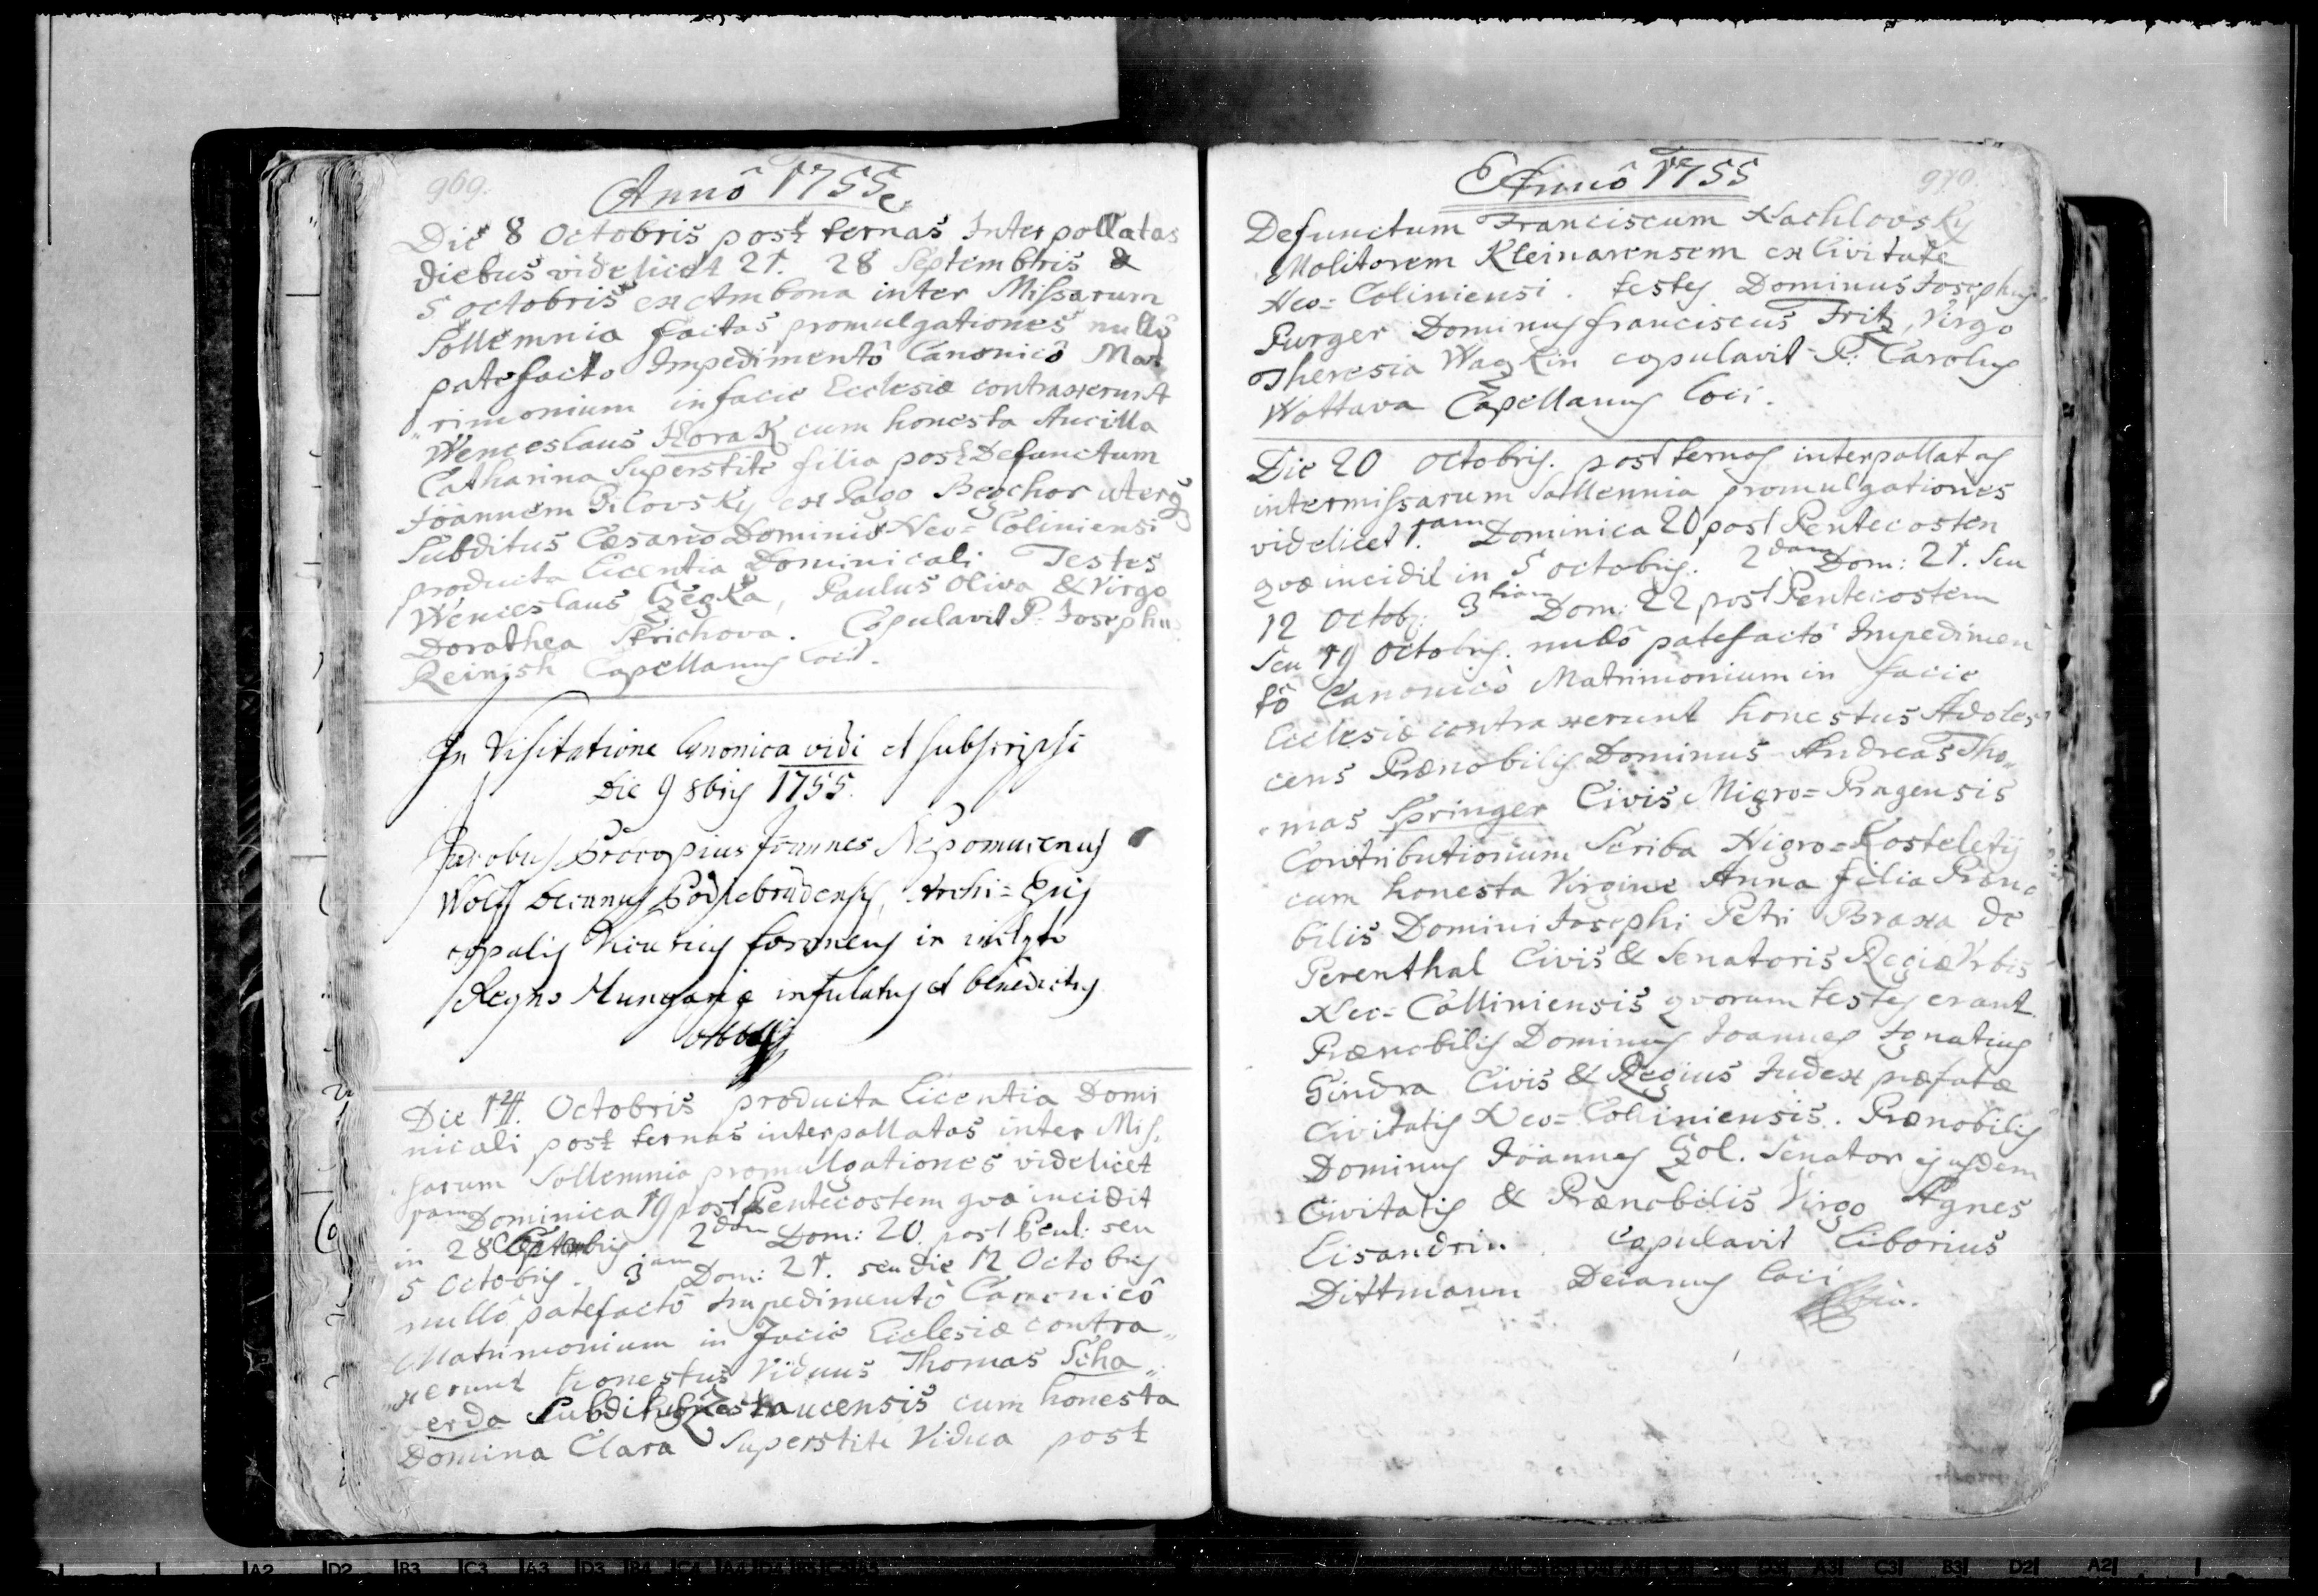 969.
Annô 1755
Die 8 Octobris post ternas Interpollatas
diebus videlicet 21. 28 Septembris &
5 octobris ex Ambona inter Missarum
Sollemnia factas promulgationes nullô
patefacto Impedimentô Canonicô Mat
rimonium in facie Ecclesiæ contraxerunt
Wenceslaus Horak cum honesta Ancilla
Catharina Superstite filia post Defunctum
Joannem Pilovsky ex Pago Begchor uterq
Subditus Cæsareo Dominio Neo=Coliniensi
producta Licentia Dominicali Testes
Wenceslaus Czegka, Paulus Oliva & Virgo
Dorathea Strichova. Copulavit P: Josephus
Reinish Capellanus loci.
In Visitatione Canonica vidi et subscripsi
Die 9 8bris 1755.
Jacobus Procopius Joannes Nepomucenus
Wolff Decanus Podiebradensis, Archi=Epis
copalis Vicarius foraneus in inclyto
Regno Hungariæ infulatus et benedictus
Abbas
Die 14. Octobris producta Licentia Domi
nicali post ternas interpallatas inter Mis,
sarum Sollemnia promulgationes videlicet
1am Dominica 19 post Pentecostem qvæ incidit
in 28 2dam Dom: 20. post Pent: seu
5 Octobris. 3am Dom: 21. seu die 12 Octobris
nullô patefactô Impedimentô Canonicô
Matrimonium in Facie Ecclesiæ contra„
xerunt honestus Viduus Thomas Scha„
verda Subditus cum honesta
Domina Clara Superstite Vidua post
970
Annô 1755
Defunctum Franciscum Nachlovsky
Molitorem Kleinarensem ex Civitate
Neo=Coliniensi. testes Dominus Josephus
Purger Dominus franciscus Fritz, Virgo
Theresia Wagkin copulavit P: Carolus
Wottava Capellanus loci.
Die 20 octobris. post ternas interpallatas
intermissarum Sollennia promulgationes
videlicet 1.am Dominica 20 post Pentecosten
qvæ incidit in 5 octobris. 2dam Dom: 21. Seu
12 Octob: 3tiam Dom: 22 post Pentecostem
Seu 19 Octobris. nullô patefactô Impedimen
tô Canonicô Matrimonium in facie
Ecclesiæ contraxerunt honestus Adoles
cens Prænobilis Dominus Andreas Tho„
mas Springer Civis Migro=Pragensis
Contributionum Scriba Nigro=Kosteletij
cum honesta Virgine Anna filia Præno
bilis Domini Josephi Petri Braxa de
Perenthal Civis & Senatoris Regiæ Vrbis
Neo=Colliniensis qvorum testes erant
Prænobilis Dominus Joannes Ignatius
Gindra Civis & Regius Judex præfatæ
Civitatis Neo=Colliniensis. Prænobilis
Dominus Joannes Gol. Senator ejusdem
Civitatis & Prænobilis Virgo Agnes
Lisandrin. Copulavit Liborius
Dittmann Decanus loci